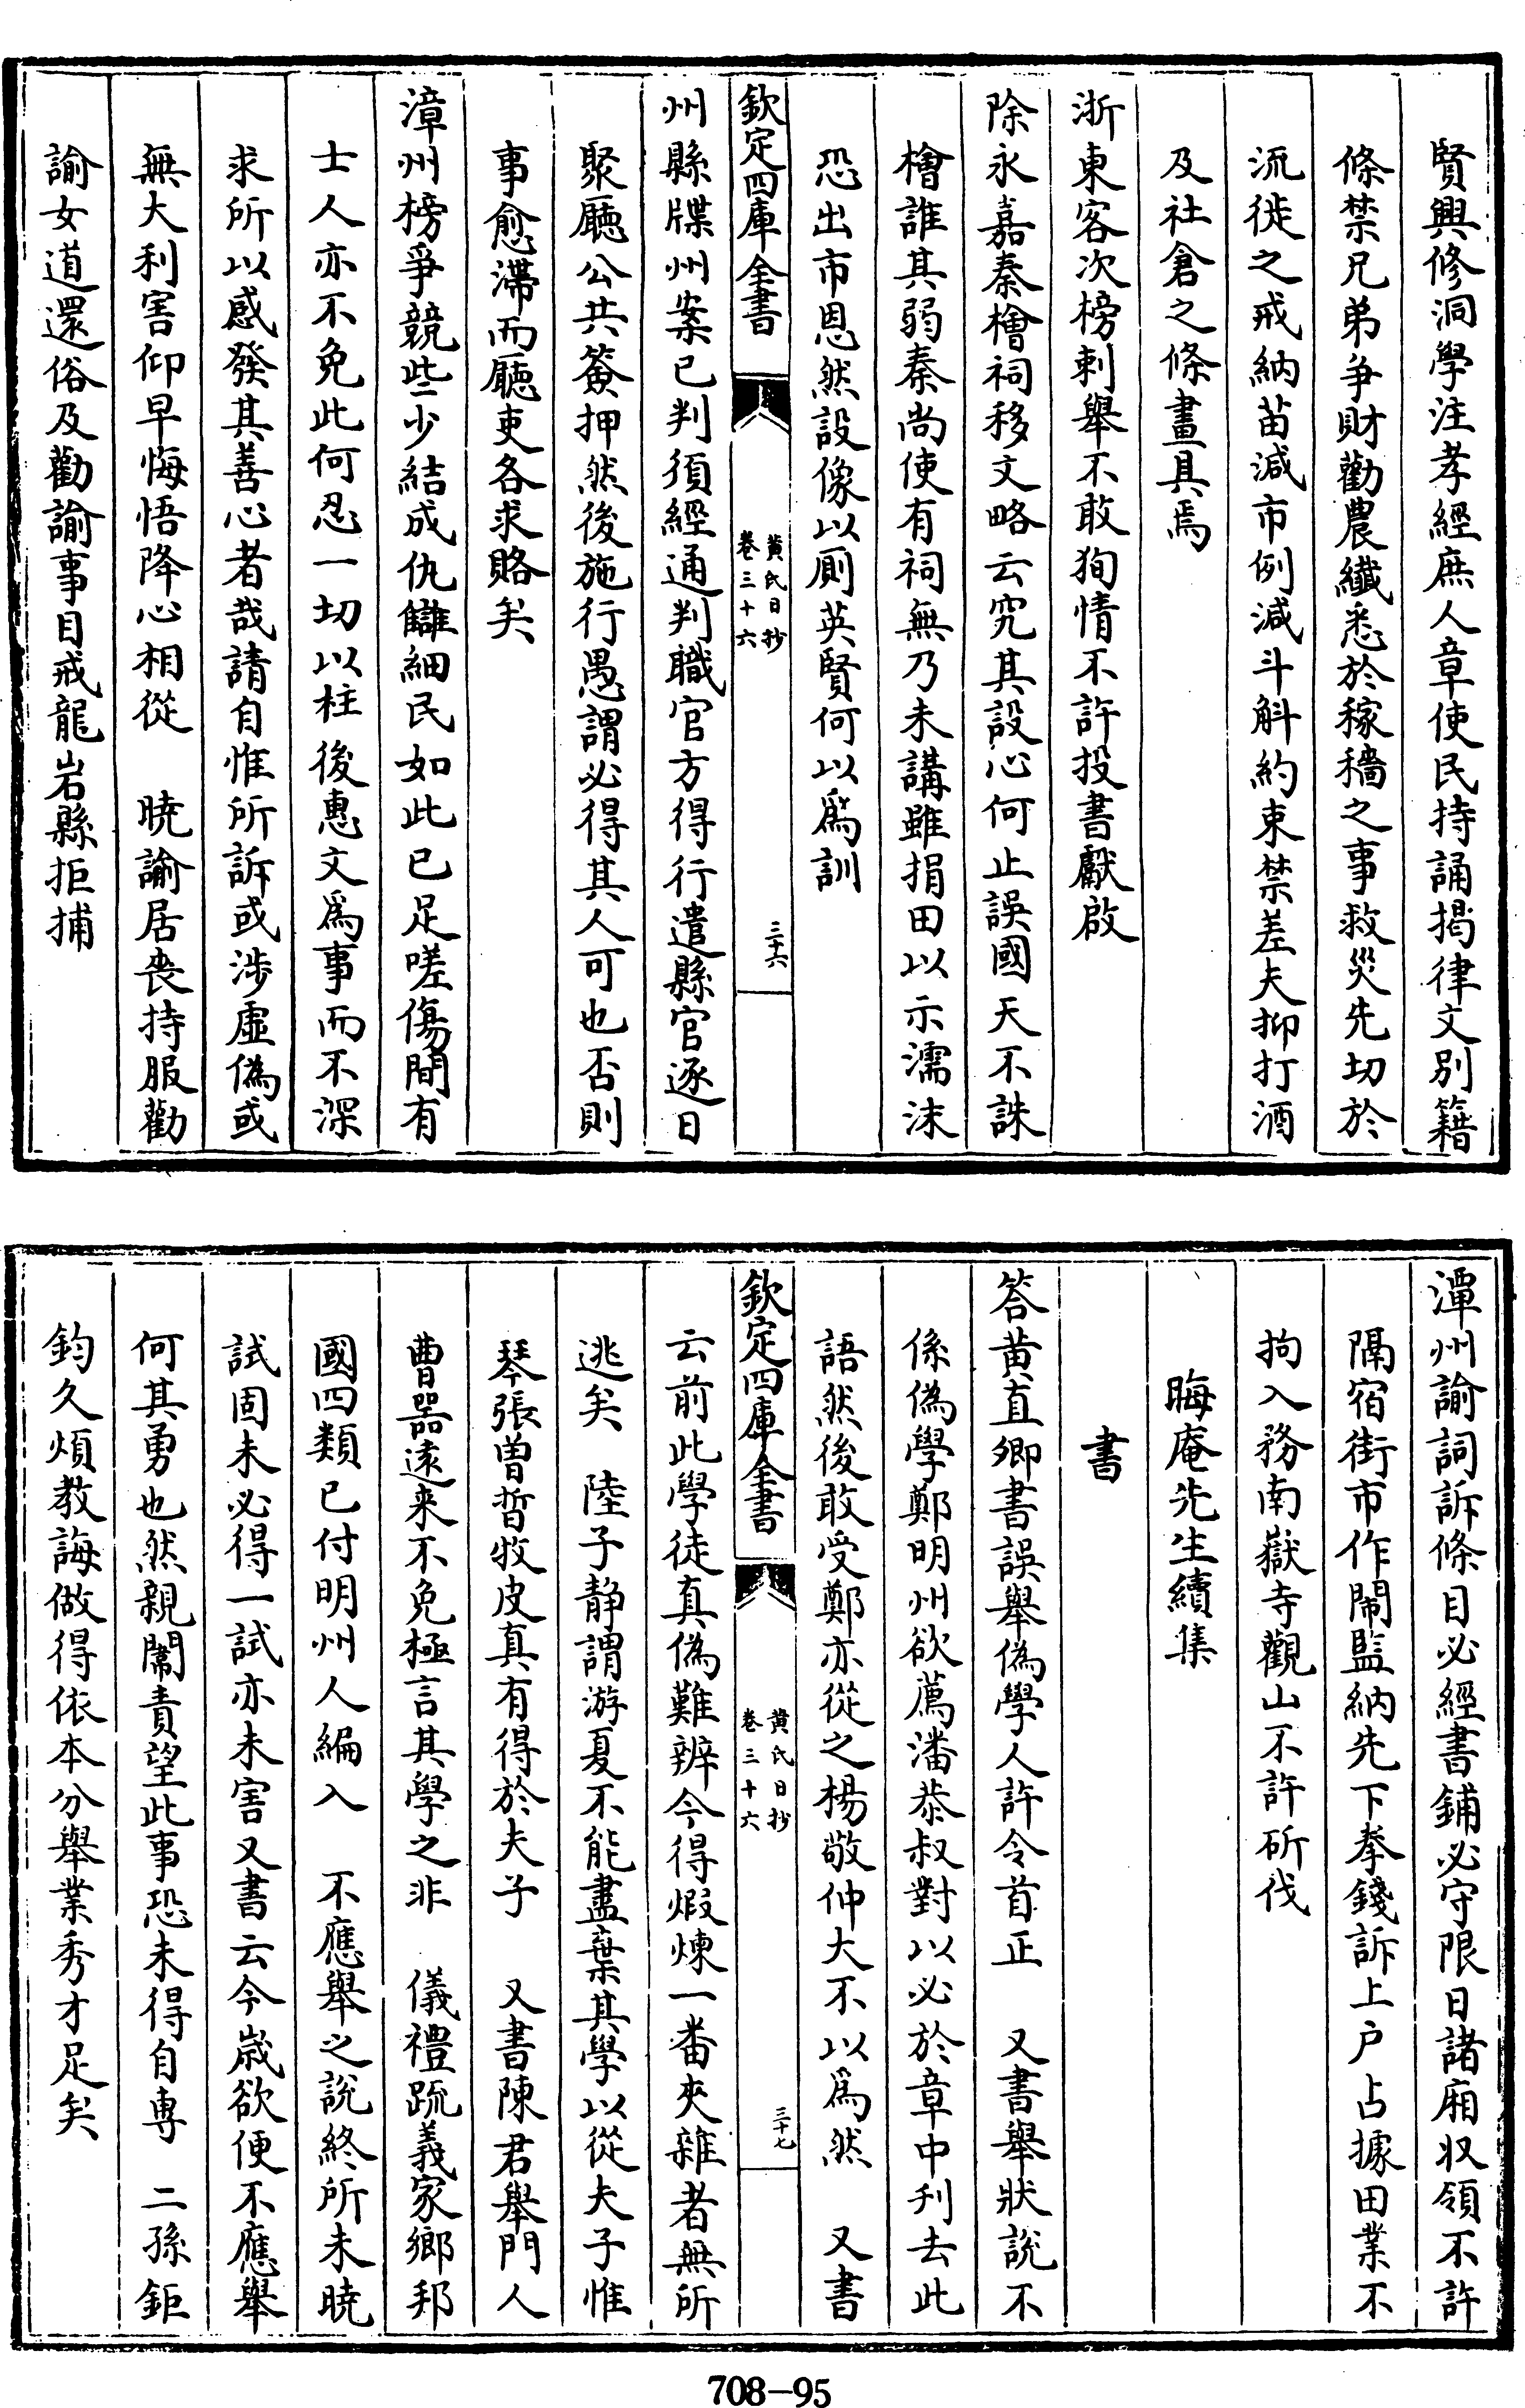 賢興修洞學注孝經庶人章使民持誦揭律文別籍
條禁兄弟争財勸農纖悉於稼穡之事救災先切於
流徙之戒納苗減市例減斗斛約束禁差夫抑打酒
及社倉之條畫具焉
浙東客次榜刺舉不敢狥情不許投書獻啟
除永嘉秦檜祠移文略云究其設心何止誤國天不誅
檜誰其弱秦尚使有祠無乃未講雖捐田以示濡沫
恐出市恩然設像以厠英賢何以為訓
欽定四庫全書
黄氏日抄
卷三十六
三十六
州縣牒州案已判須經通判職官方得行遣縣官逐日
聚廳公共簽押然後施行愚謂必得其人可也否則
事愈滯而廳吏各求賂矣
漳州榜爭競些少結成仇讎細民如此已足嗟傷間有
士人亦不免此何忍一切以柱後惠文爲事而不深
求所以感發其善心者哉請自惟所訴或涉虛偽或
無大利害仰早悔悟降心相從　曉諭居喪持服勸
諭女道還俗及勸諭事目戒龍岩縣拒捕
潭州諭詞訴條目必經書鋪必守限日諸廂収領不許
隔宿街市作閙監納先下拳錢訴上户占據田業不
拘入務南嶽寺觀山不許斫伐
晦庵先生續集
書
答黄直卿書誤舉偽學人許令首正　又書舉狀說不
係偽學鄭明州欲薦潘恭叔對以必於章中刋去此
語然後敢受鄭亦從之楊敬仲大不以爲然　又書
欽定四庫全書
黄氏日抄
卷三十六
三十七
云前此學徒真偽難辨今得煆煉一番夾雜者無所
逃矣　陸子静謂游夏不能盡棄其學以從夫子惟
琴張曽晳牧皮真有得於夫子　又書陳君舉門人
曹器遠来不免極言其學之非　儀禮䟽義家鄉邦
國四類已付明州人編入　不應舉之說終所未曉
試固未必得一試亦未害又書云今歲欲便不應舉
何其勇也然親闈責望此事恐未得自專　二孫鉅
鈞久煩教誨做得依本分舉業秀才足矣
708-95